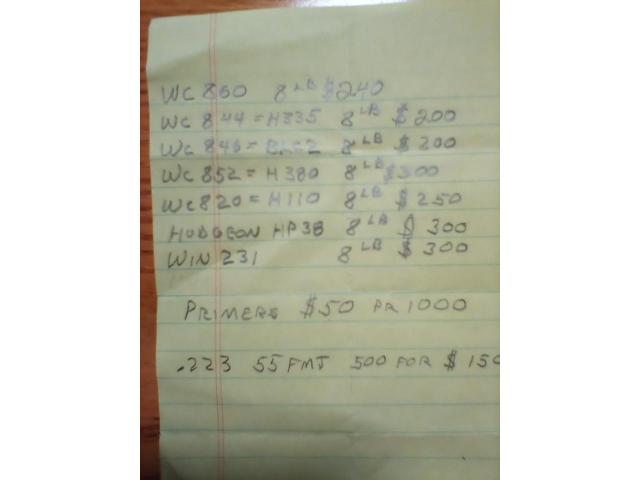 WC 860 8 LB $240
WC 844 = H335 8 LB $200
WC 846 = BLC2 8 LB $200
WC 852 = H380 8 LB $300
WC 820 = H110 8 LB $250
HODGEON HP38 8 LB $300
WIN 231 8 LB $300
PRIMERS $50 PR 1000
.223 55 FMJ 500 FOR $150